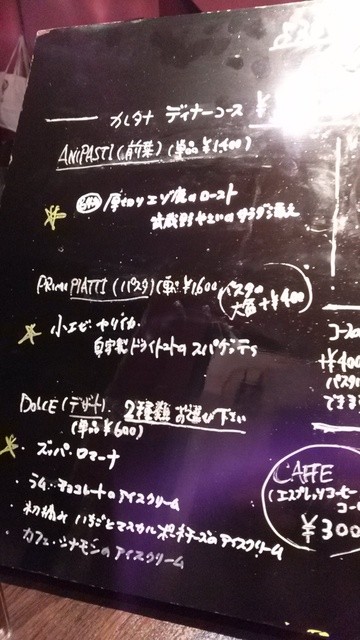 ディナーコース ¥
ANTIPASTI (前菜) (単品 ¥1400)
厚切りエゾ鹿のロースト
武蔵野やさいのサラダ添え
PRIMI PIATTI (パスタ) (単品 ¥1600)
パスタの
大盛 +¥400
小エビ ヤリイカ
自家製ドライトマトのスパゲッティ
DOLCE (デザート) 2種類お選び下さい
(単品 ¥600)
ズッパ・ロマーナ
・ラム・チョコレートのアイスクリーム
・初摘み いちごとマスカルポーネチーズのアイスクリーム
・カフェ・シナモンのアイスクリーム
+¥400
パスタ
できま
CAFFE
(エスプレッソコーヒー
¥300